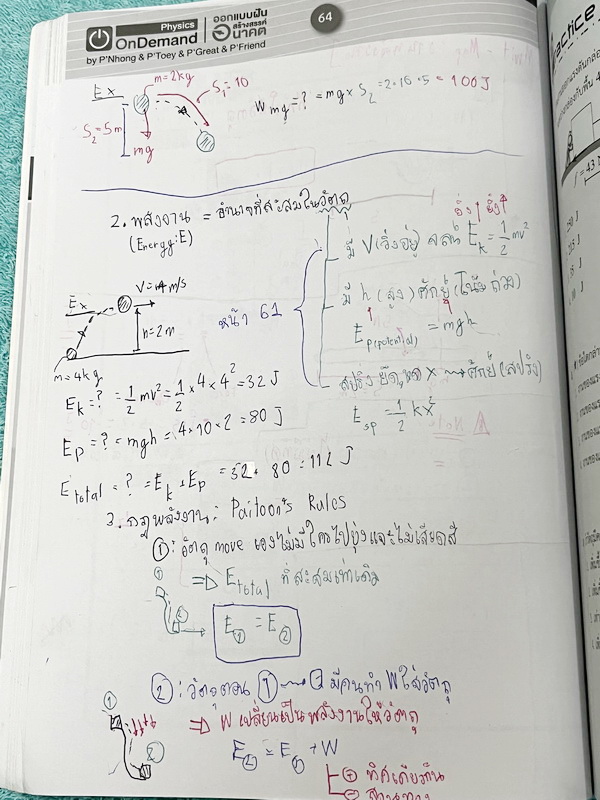 Physics
OnDemand
by P'Nhong & P'Toey & P'Great & P'Friend
ออกแบบฝัน
สร้างสรรค์
อนาคต
64
Ex m=2kg S₁=10
S₂=5m mg
W mg =? = mg × S₂ = 2·10·5 = 100 J
2. พลังงาน = อำนาจที่สะสมในวัตถุ
(Energy:E)
มี V(วิ่งอยู่) จลน์ E_k = ½mv²
Ex V=4 m/s
h=2m
m=4kg
หน้า 61
มี h (สูง) ศักย์ (โน้มถ่วง)
E_p(potential) = mgh
สปริง ยืด, หด x → ศักย์ (สปริง)
E_sp = ½ kx²
E_k =? = ½mv² = ½ × 4 × 4² = 32 J
E_p = ? = mgh = 4 × 10 × 2 = 80 J
E_total = ? = E_k + E_p = 32 + 80 = 112 J
3. กฎพลังงาน: Paitoon's Rules
①: วัตถุ move เองไม่มีใครไปยุ่งและไม่เสียดสี
⇒ E_total ที่สะสมเท่าเดิม
E① = E②
②: วัตถุตอน ① → ② มีคนทำ W ใส่วัตถุ
⇒ W เปลี่ยนเป็นพลังงานให้วัตถุ
E② = E① + W
⊕ ทิศเดียวกัน